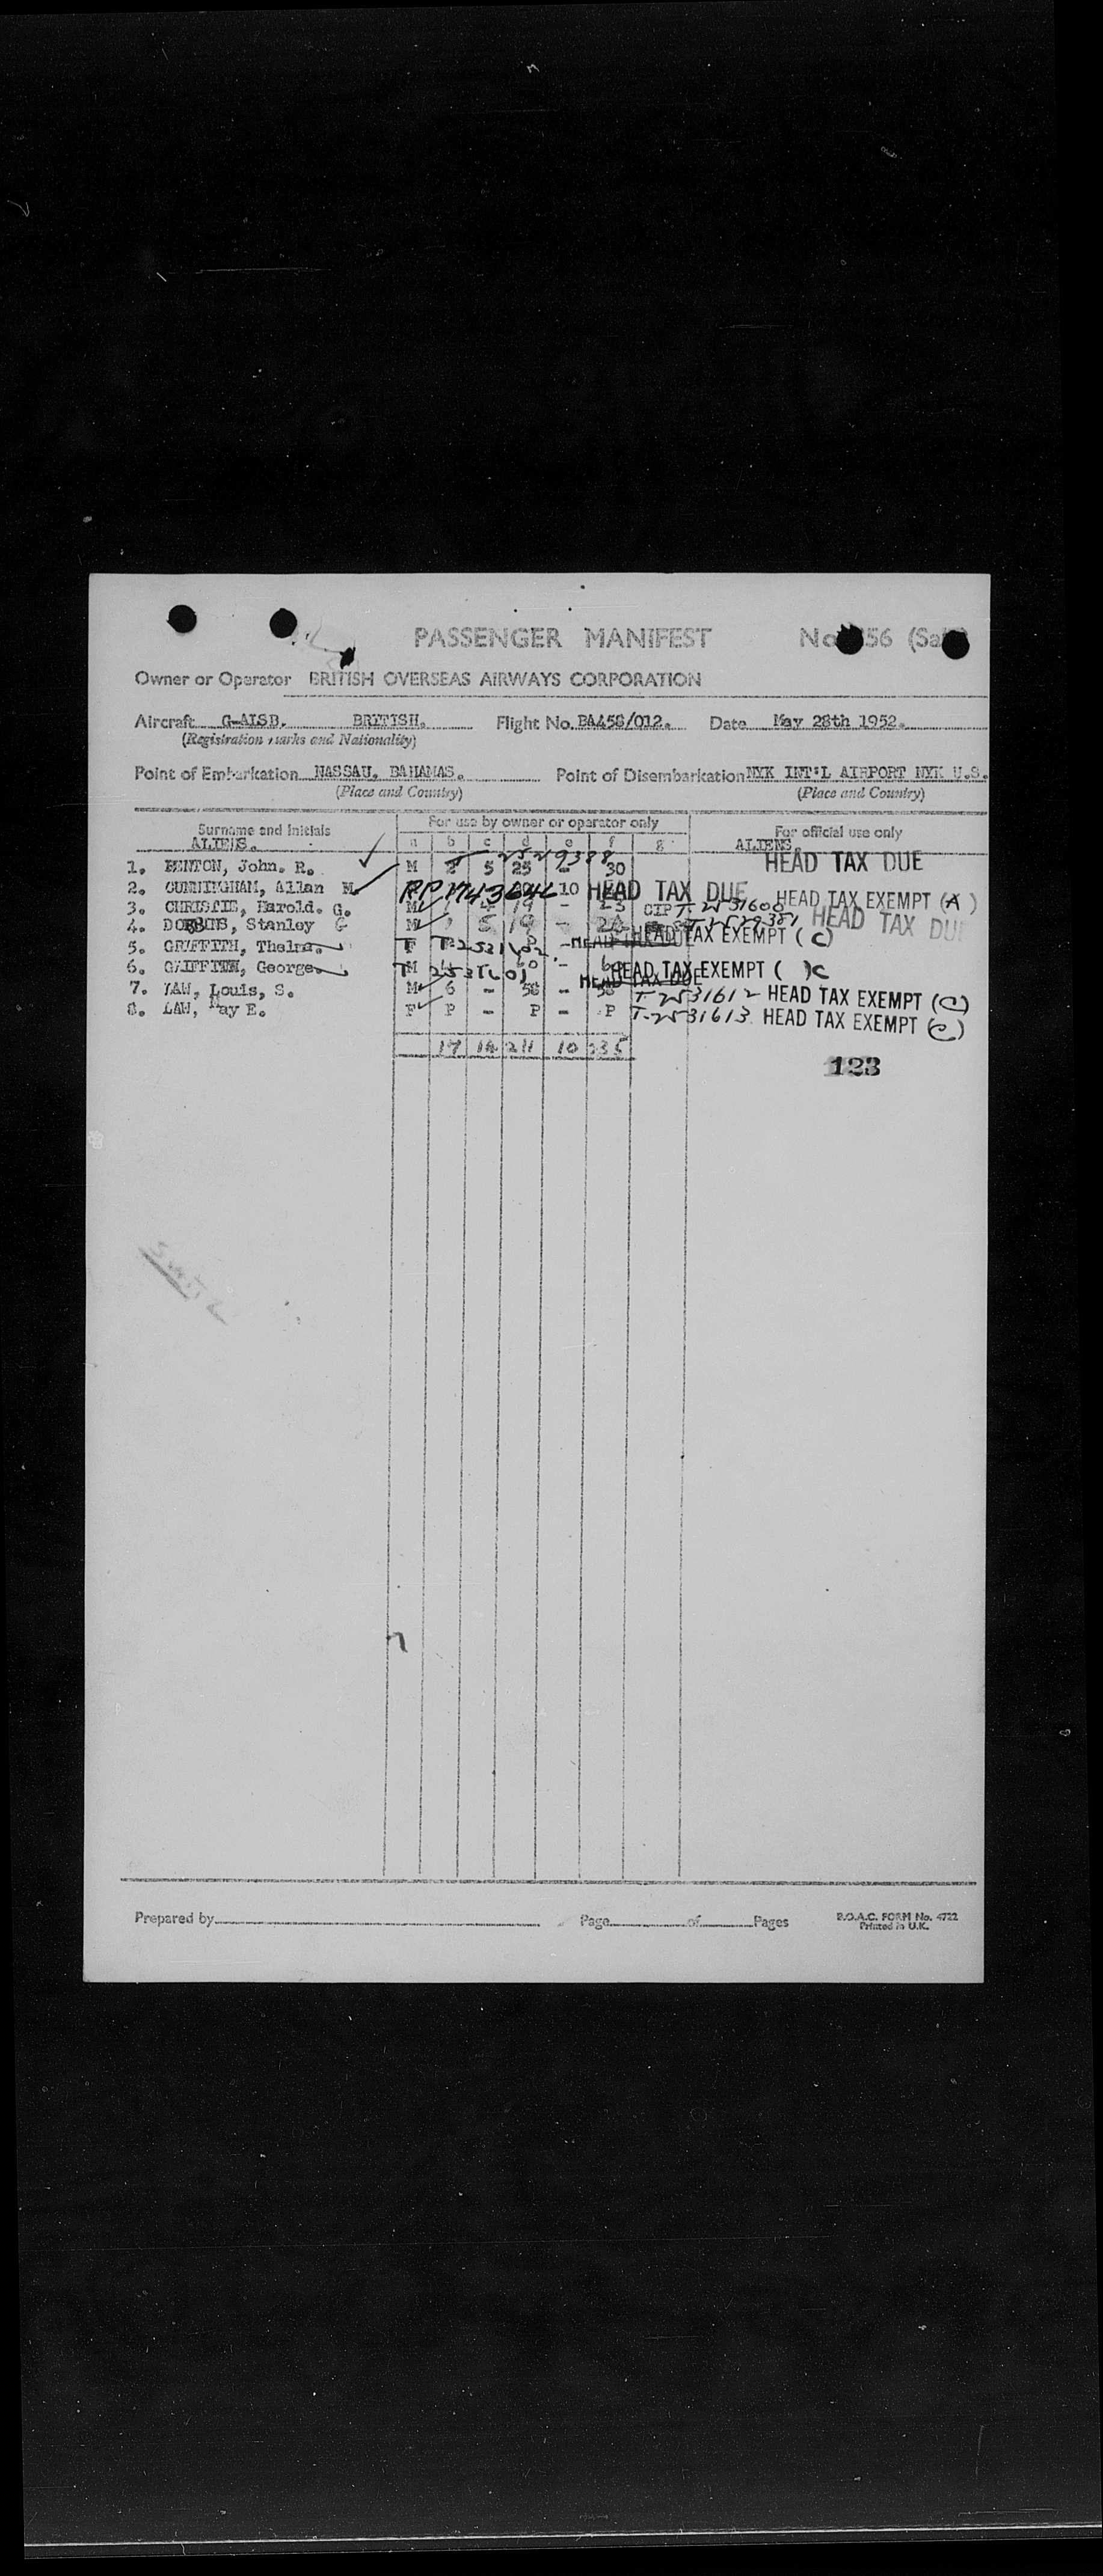 PASSENGER MANIFEST
Owner or Operator BRITISH OVERSEAS AIRWAYS CORPORATION
Aircraft G-ALSB. BRITISH. Flight No. BA458/012. Date May 28th 1952.
(Registration marks and Nationality)
Point of Embarkation NASSAU. BAHAMAS. Point of Disembarkation NYK INT'L AIRPORT NYK U.S.
(Place and Country) (Place and Country)
Surname and Initials For use by owner or operator only For official use only
ALIENS. a b c d e f g ALIENS.
1. BENTON, John. R. M 2 5 23 - 30 HEAD TAX DUE
2. CUNNINGHAM, Allan M. 10 HEAD TAX DUE
3. CHRISTIE, Harold. G. M 4 19 - 23 T-2531600 HEAD TAX EXEMPT (A)
4. Stanley G M 5 19 - 24 T-2529381 HEAD TAX DUE
5. GRIFFITH, Thelma. F T-2531602 HEAD TAX DUE HEAD TAX EXEMPT (C)
6. GRIFFITH, George. M T 2531601 HEAD TAX DUE HEAD TAX EXEMPT ( )C
7. LAW, Louis, S. M 6 - 58 - 58 T-2531612 HEAD TAX EXEMPT (C)
8. LAW, May E. F P - P - P T-2531613 HEAD TAX EXEMPT (C)
17 14 211 10 235
123
Prepared by Page of Pages B.O.A.C. FORM No. 4722
Printed in U.K.